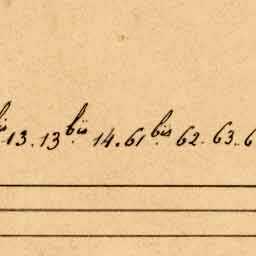 is 13. 13 bis 14. 61 bis 62. 63. 6